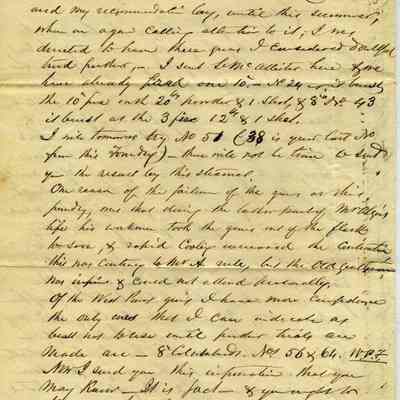 and my recommendation lay, until this summer,
when on again calling attention to it, I was
directed to have these guns I considered doubtful
tried further,— I sent Lt McAllister here & we
have already fired one 10 in — No 24 — it bursts
the 10 fire with 20 lbs powder & 1 Shot, & 8 in No 43
is burst at the 3 fire 12 lbs & 1 Shot.
I will tomorrow try No 51 (38 is your last No
from this Foundry) — there will not be time to send
you the result by this steamer.
One reason of the failure of the guns at this
foundry, was that during the latter part of Mr
life his workmen took the guns out of the flask
too soon, & rapid Cooling increased the Contraction
this was Contrary to Mr A. rule, but the Old Gentleman
was infirm & could not attend personally.
Of the West Point guns I have more Confidence
the only ones that I can indicate as
best not to use until further trials are
made are — 8 in Columbiads. Nos 56 & 64. W.P.F
Now I send you this information that you
may know — It is fact — & you ought to